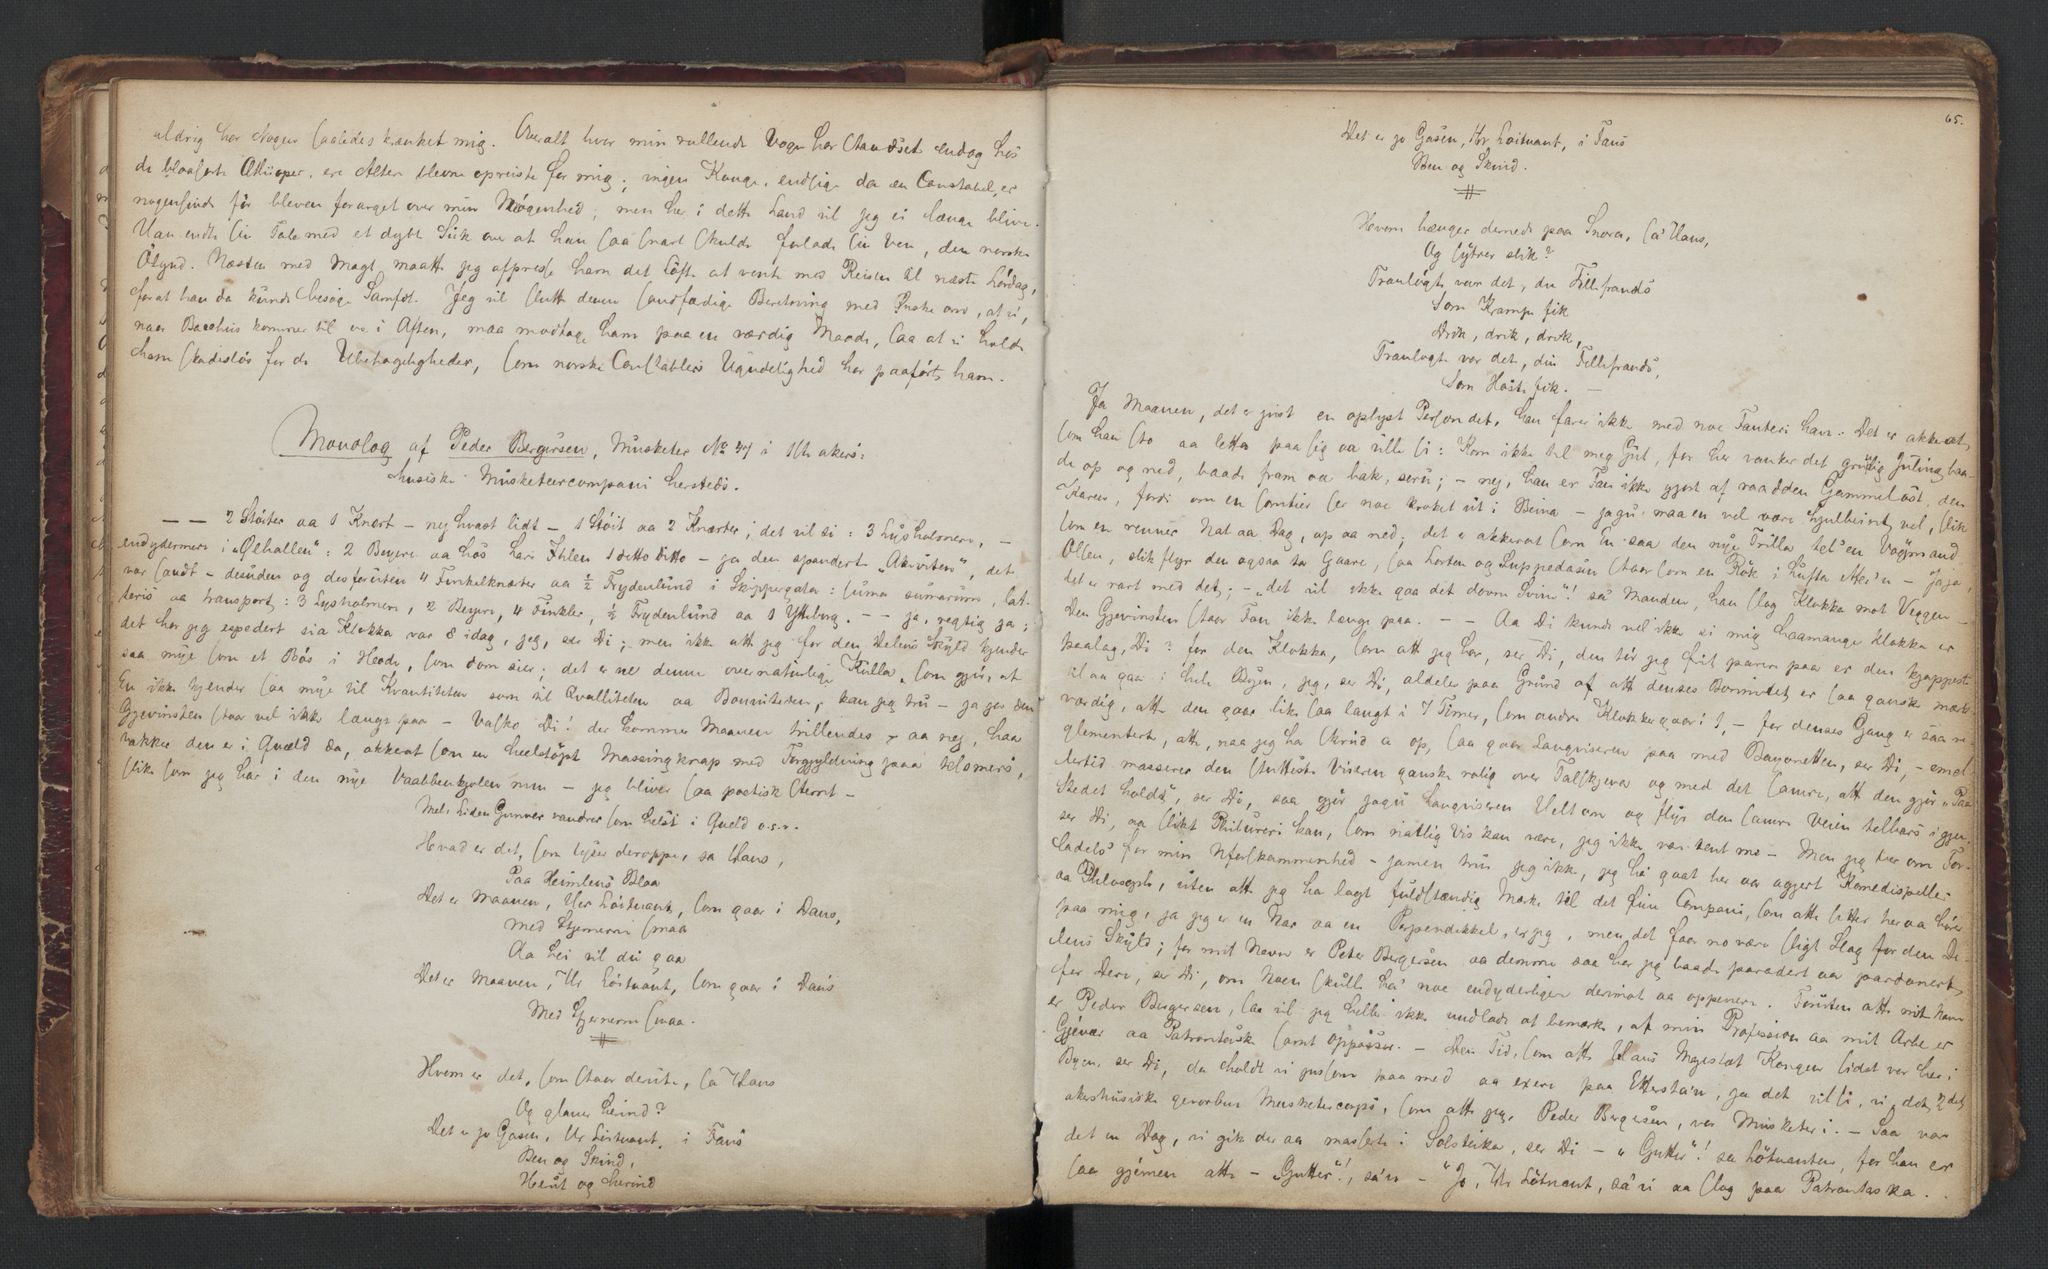 aldrig har Nogen saaledes krænket mig. Overalt hvor min rullende Vogn har standset endog hos
de blaasorte Æthioper, ere Altere blevne opreiste for mig; ingen Konge, endsige da en Constabel, er
nogensinde før bleven forarget over min Nøgenhed; men her i dette Land vil jeg ei længe blive.
Han endte sin Tale med et dybt Suk over at han saa snart skulde forlade sin Ven, den norske
Ølgud. Næsten med Magt maatte jeg afpresse ham det Løfte at vente med Reisen til næste Lørdag,
for at han da kunde besøge Samfdt. Jeg vil slutte denne sandfærdige Beretning med Ønske om, at vi,
naar Bacchus kommer til os i Aften, maa modtage ham paa en værdig Maade, saa at vi holde
ham skadesløs for de Ubehageligheder, som norske Constablers Ugudelighed har paaført ham.
Monolog af Peder Bergersen, Musketer No 47 i 1ste akers-
husiske Musketeercompani hersteds.
— — 2 Støiter aa 1 Knært – nej hvast lidt – 1 Støit aa 2 Knærter; det vil si: 3 Lysholmere, –
endydermere i „Ølhallen": 2 Bayere aa hos Lars Ihlen 1 ditto ditto – ja den spanderte „Akiviten", det
var sandt – desuden og desforuten 4 Finkelknæter aa ½ Frydenlund i Skippergata: suma sumarum, lat-
teris aa transport: 3 Lysholmere, 2 Bayere, 4 Finkler, ½ Frydenlund aa 1 Ytteborg. – – ja, regtig ja;
det har jeg espedert sia Klokka var 8 idag, jeg, ser Di; men ikke att jeg for den Delens Skyld kjender
saa mye som et Bøs i Hoode, som dom sier; det er no denne overnaturlige Kulla, som gjør, at
En ikke kjender saa mye til Kvantiteten som til Qvalliteten aa Bonniteten, kan jeg tru – ja ja den
Gjevinsten staar vel ikke længe paa – Vasko Di! der kommer Maanen trillendes – aa nej, haa
vakker den er i Quæld da, akkorat som en heelstøpt Massingknap med Forgyldning paa telsmers,
slike som jeg har i den nye Vaabbenkjolen min – jeg bliver saa poetisk stemt –
Mel: Liden Gunver vandrer som helst i Quæld o.s.v.
Hvad er det, som lyser deroppe, sa Hans,
Paa Heimlens Blaa
Det er Maanen, Herr Løitnant, som gaar i Dans,
Med Stjernerne smaa
Aa hei vil du gaa
Det er Maanen, Hr Løitnant, som gaar i Dans
Med Stjernerne smaa.
Hvem er det, som staar derute, sa' Hans
Og glaner herind?
Det er jo Gasen, Hr Løitnant, i Fans
Ben og Skind,
Herut og herind
65.
Det er jo Gasen, Hr Loitnant, i Fans
Ben og Skind.
Hvem hænger dernede paa Snora, sa' Hans,
Og sprer slik?
Tranlogte var det, du Fillefrands
Som Krampe fik
Drik, drik, drik,
Tranlogte var det, du Fillefrands,
Som Hoste fik. —
Ja Maanen, det er just en oplyst Person det, han farer ikke med noe Fanteri han. Det er akkorat,
som han sto aa letta paa sig aa ville si: Kom ikke til meg Gut, for her vanker det grudig Juling baa-
de op og ned, baade fram aa bak, seru; – nej, han er Fan ikke gjort af raadden Gammelost, den
Karen, fordi om en somtier ser noe kroket ut i Beina – jagu maa en vel være hjulbeint vel, slik
som en renner Nat aa Dag, op aa ned; det er akkorat som En saa den nye Trilla tel'en Vognmand
Ollen, slik flyr den ogsaa ta Gaare, saa Lorten og Suppedasen staar som en Røk i Lufta etter'n – jaja,
det er rart med det; – „det vil ikke gaa det dovne Svin"! sa Manden, han slog Klokka mot Væggen –
Den Gjevinsten staar Fan ikke længe paa. – – Aa Di kunde vel ikke si mig haamange Klokka er
paalag, Di? for den Klokka, som att jeg har, ser Di, den tør jeg frit parere paa er den kjappest
til aa gaa i hele Byen, jeg, ser Di, aldeles paa Grund af att denses Bonnitet er saa ganske mærk-
værdig, atte den gaar like saa langt i 7 Timer, som andre Klokker gaar i 1, – for denses Gang er saa re-
glementert, atte, naa jeg ha skrud a op, saa gaar Langviseren paa med Bayonetten, ser Di, – emel-
lertid masserer den stuttiste Viseren ganske rolig over Talskjeva og med det samme, att den gjør „Paa
Stedet holdt", ser Di, saa gjør jagu Langviseren Helt om og flyr den samme Veien telbars igjen
ser Di, aa slikt Philureri kan, som riatlig vis kan være, jeg ikke være tent me – Men jeg ber om For-
ladels' for min Ufolkommenhed – jamen trur jeg ikke, jeg ha gaat her aa agjert Komedispeller
aa Philosoph, uten att jeg ha lagt fuldstændig Mærke til det fine Compani, som atte sitter her aa hører
paa mig, ja jeg er en Nar aa en Perpendikkel, er jeg, men det faar no være sligt Slag for den De-
lens Skyld; for mit Navn er Peter Bergersen aa demme saa har jeg baade paradert aa pardonert
for Dere, ser Di, om Noen skulle ha' noe endyderligere derimot aa opponere. Foruten att mit Navn
er Peder Bergersen, saa vil jeg heller ikke undlade at bemærke, af min Profession aa mit Arbe er
Gjevær aa Patrontask samt oppasser. – Den Tid, som atte Hans Majestæt Kongen sidst var her i
Byen, ser Di, da holdt vi jussom paa med aa exere paa Etterstad'n, ja det vil si, vi, det 2det
akershusiske gevorbne Musketercorps, som atte jeg, Peder Bergersen, var Musketer i. – Saa var
det en Dag, vi gik der aa masserte i Solsteika, ser Di – „Gutter"! sa Løtnanten, for han er
saa gjemen atte – „Gutter"!, sa'n – „Jo, Hr Løtnant, sa'vi aa slog paa Patrontaska.